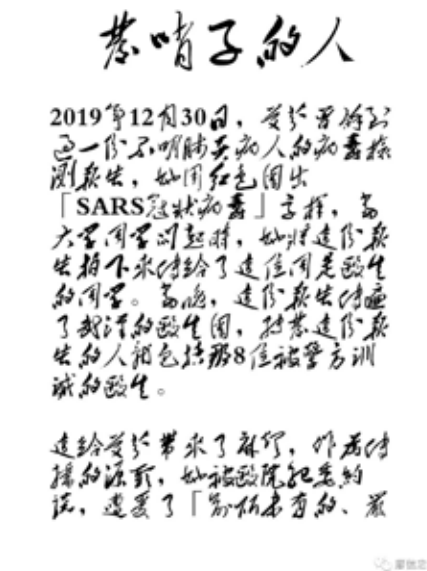 发哨子的人
2019年12月30日，艾芬曾拿到
过一份不明肺炎病人的病毒检
测报告，她用红色圈出
「SARS冠状病毒」字样，当
大学同学问起时，她将这份报
告拍下来传给了这位同是医生
的同学。当晚，这份报告传遍
了武汉的医生圈，转发这份报
告的人就包括那8位被警方训
诫的医生。
这给艾芬带来了麻烦，作为传
播的源头，她被医院纪委约
谈，遭受了「前所未有的、严
廖信忠